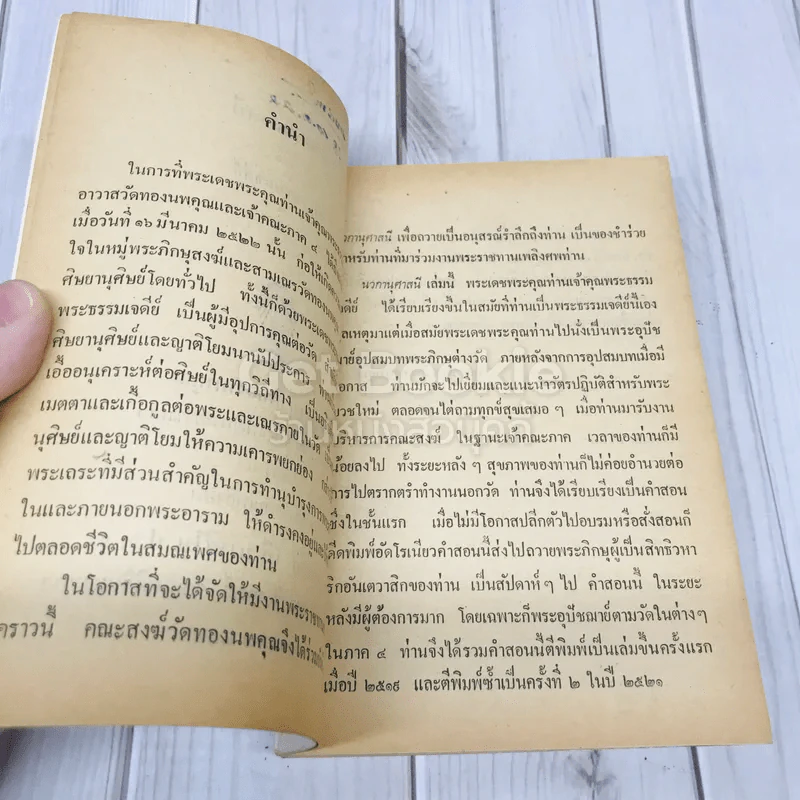 คำนำ
ในการที่พระเดชพระคุณท่านเจ้าคุณ
อาวาสวัดทองนพคุณและเจ้าคณะภาค ๔
เมื่อวันที่ ๑๖ มีนาคม ๒๕๒๒ นั้น ก่อให้เกิด
ใจในหมู่พระภิกษุสงฆ์และสามเณรวัดทองนพ
ศิษยานุศิษย์โดยทั่วไป ทั้งนี้ก็ด้วยพระเดช
พระธรรมเจดีย์ เป็นผู้มีอุปการคุณต่อวัด
ศิษยานุศิษย์และญาติโยมนานัปประการ
เอื้ออนุเคราะห์ต่อศิษย์ในทุกวิถีทาง
เมตตาและเกื้อกูลต่อพระและเณรภายในวัด
นุศิษย์และญาติโยมให้ความเคารพยกย่อง
พระเถระที่มีส่วนสำคัญในการทำนุบำรุง
ในและภายนอกพระอาราม ให้ดำรงคงอยู่
ไปตลอดชีวิตในสมณเพศของท่าน
ในโอกาสที่จะได้จัดให้มีงานพระราช
คราวนี้ คณะสงฆ์วัดทองนพคุณจึงได้
วกานุศาสนี เพื่อถวายเป็นอนุสรณ์รำลึกถึงท่าน เป็นของชำร่วย
หรับท่านที่มาร่วมงานพระราชทานเพลิงศพท่าน
นวกานุศาสนี เล่มนี้ พระเดชพระคุณท่านเจ้าคุณพระธรรม
เจดีย์ ได้เรียบเรียงขึ้นในสมัยที่ท่านเป็นพระธรรมเจดีย์นี้เอง
ลเหตุมาแต่เมื่อสมัยพระเดชพระคุณท่านไปนั่งเป็นพระอุปัช
ฌาย์อุปสมบทพระภิกษุต่างวัด ภายหลังจากการอุปสมบทเมื่อมี
อกาส ท่านมักจะไปเยี่ยมและแนะนำวัตรปฏิบัติสำหรับพระ
บวชใหม่ ตลอดจนไต่ถามทุกข์สุขเสมอ ๆ เมื่อท่านมารับงาน
บริหารการคณะสงฆ์ ในฐานะเจ้าคณะภาค เวลาของท่านก็มี
น้อยลงไป ทั้งระยะหลัง ๆ สุขภาพของท่านก็ไม่ค่อยอำนวยต่อ
การไปตรากตรำทำงานนอกวัด ท่านจึงได้เรียบเรียงเป็นคำสอน
ซึ่งในชั้นแรก เมื่อไม่มีโอกาสปลีกตัวไปอบรมหรือสั่งสอนก็
ดีดพิมพ์อัดโรเนียวคำสอนนี้ส่งไปถวายพระภิกษุผู้เป็นสิทธิวิหา
ริกอันเตวาสิกของท่าน เป็นสัปดาห์ ๆ ไป คำสอนนี้ ในระยะ
หลังมีผู้ต้องการมาก โดยเฉพาะก็พระอุปัชฌาย์ตามวัดในต่างๆ
ในภาค ๔ ท่านจึงได้รวมคำสอนนี้ตีพิมพ์เป็นเล่มขึ้นครั้งแรก
เมื่อปี ๒๕๑๙ และตีพิมพ์ซ้ำเป็นครั้งที่ ๒ ในปี ๒๕๒๑